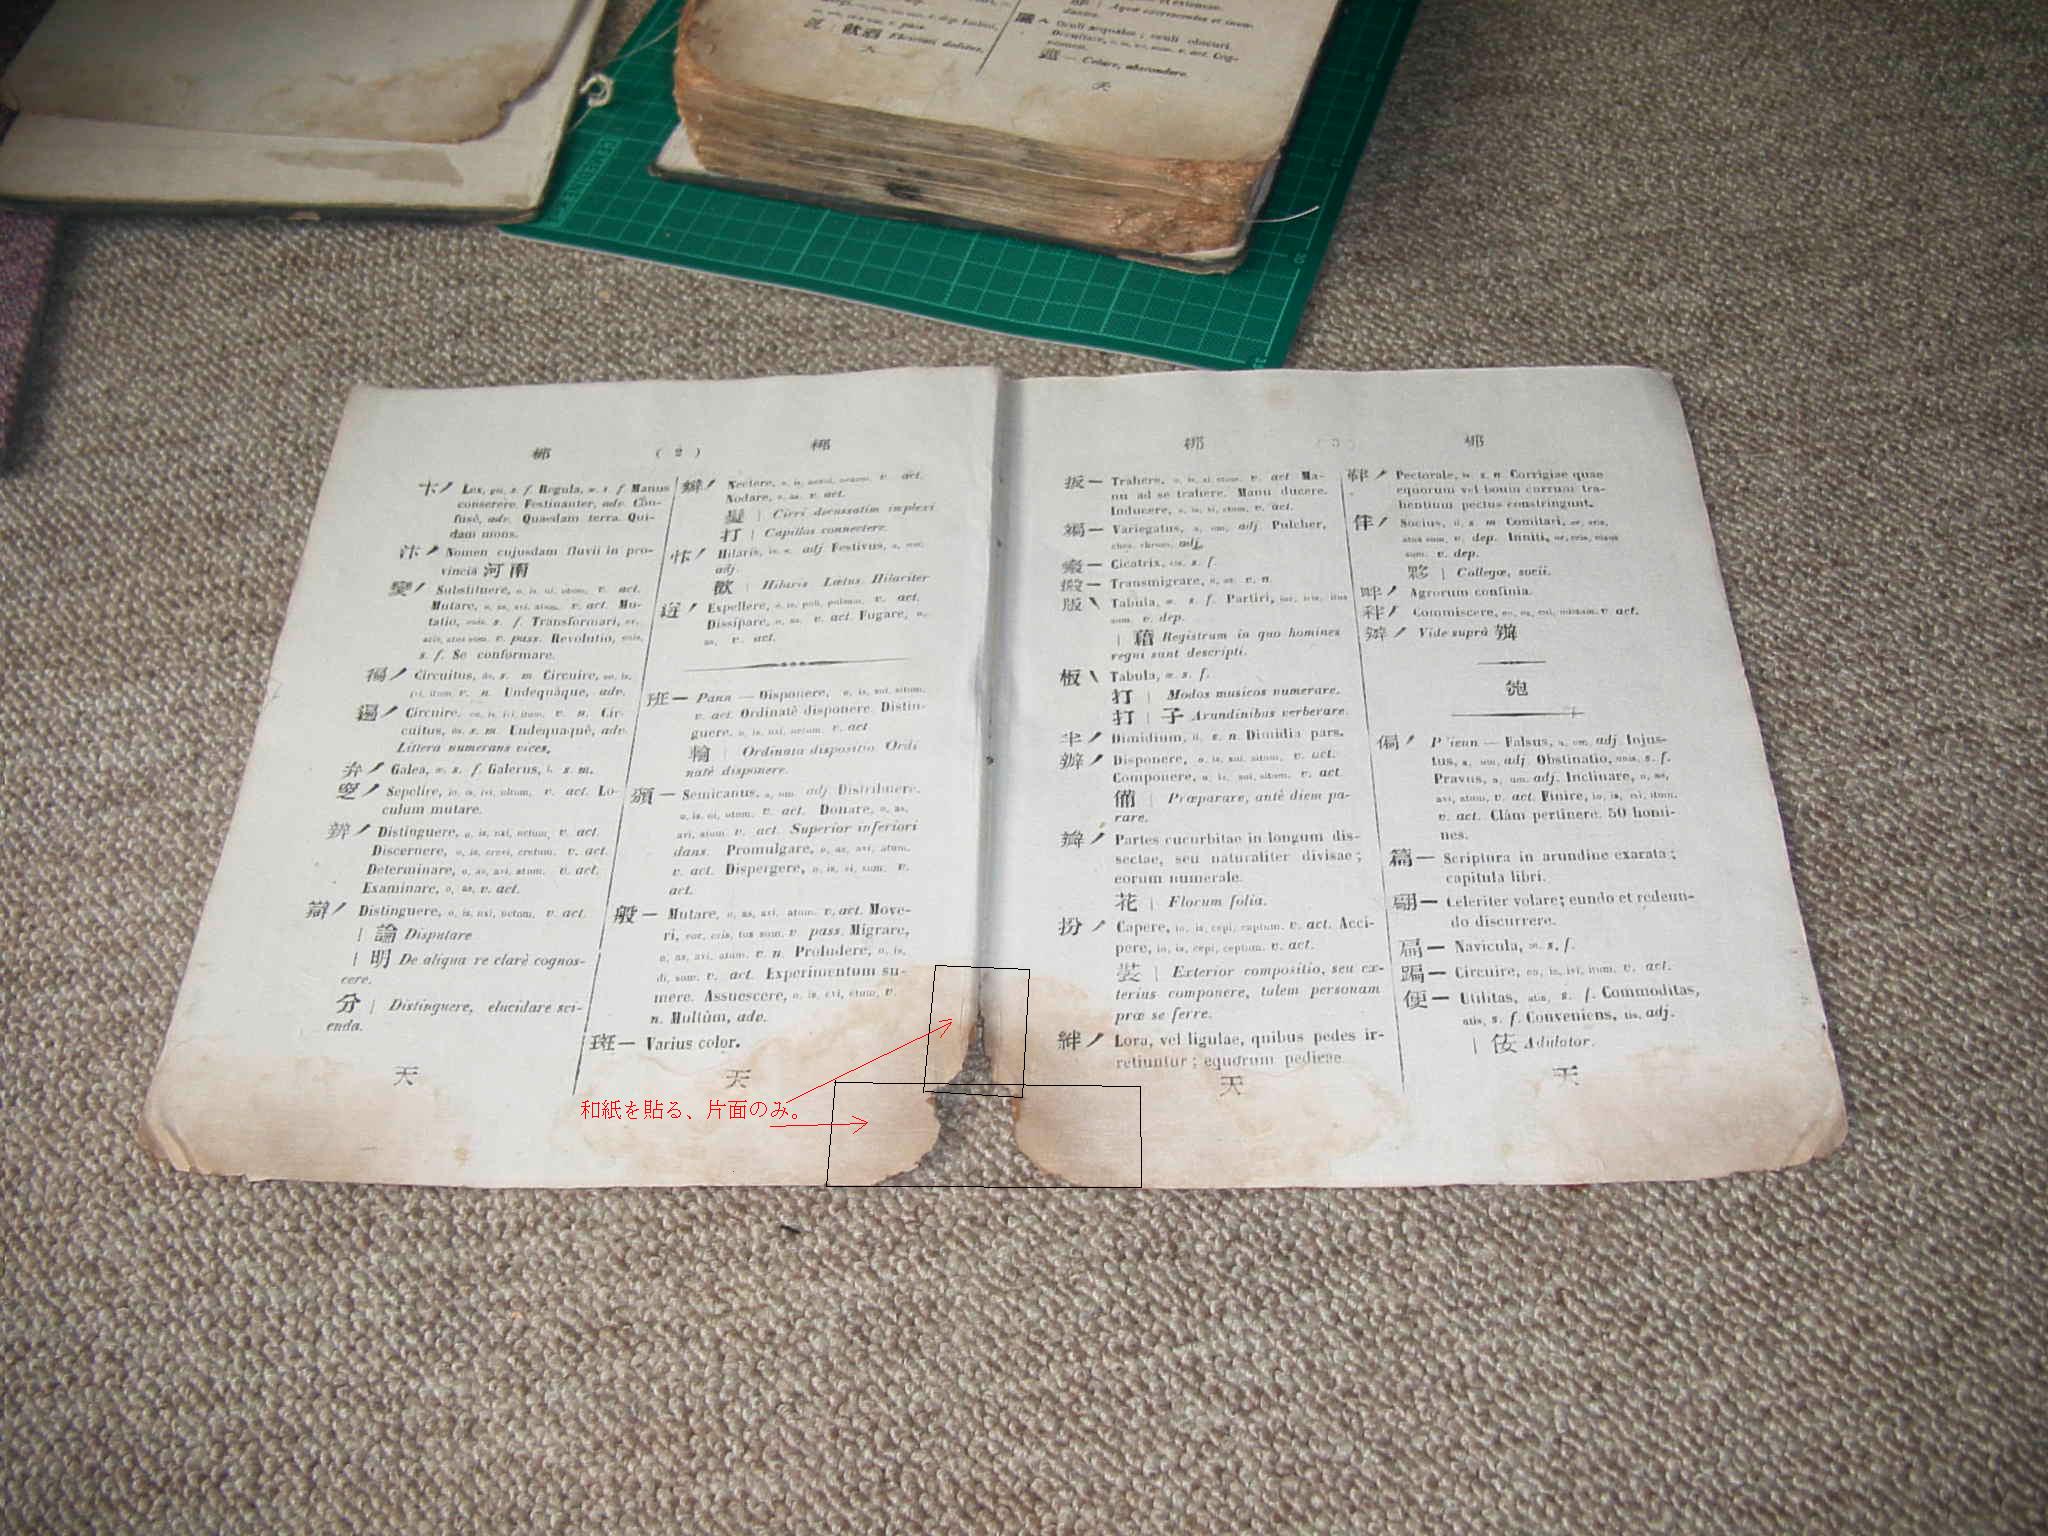 梆 ( 2 ) 梆
卞 Lex, gis, s. f. Regula, æ. s. f. Manus
conserere. Festinanter, adv. Con-
fusè, adv. Quaedam terra. Qui-
dam mons.
汴 Nomen cujusdam fluvii in pro-
vinciâ 河南
變 Substituere, o, is, ui, utum, v. act.
Mutare, o, as, avi, atum. v. act. Mu-
tatio, onis. s. f. Transformari,
atus sum. v. pass. Revolutio, onis,
s. f. Se conformare.
Circuitus, ûs, s. m. Circuire, eo, is,
ivi, itum v. n. Undequàque, adv.
遍 Circuire, eo, is, ivi, itum, v. n. Cir-
cuitus, ûs. s. m. Undequaquè, adv.
Littera numerans vices.
弁 Galea, æ. s. f. Galerus, i. s. m.
Sepelire, io, is, ivi, ultum, v. act. Lo-
culum mutare.
辨 Distinguere, o, is, nxi, nctum, v. act.
Discernere, o, is, crevi, cretum. v. act.
Determinare, o, as, avi, atum. v. act.
Examinare, o, as, v. act.
辯 Distinguere, o, is, nxi, nctum, v. act.
| 論 Disputare
| 明 De aliqua re clarè cognos-
cere.
分 | Distinguere, elucidare sci-
enda.
天
辮 Nectere, o, is, nexui, nexum. v. act.
Nodare, o, as. v. act.
髮 | Cirri decussatim implexi
打 | Capillos connectere.
忭 Hilaris, is. e. adj Festivus, a, um,
adj.
歡 | Hilaris Lætus. Hilariter
Expellere, o, is, puli, pulsum, v. act.
Dissipare, o, as. v. act. Fugare, o,
as, v. act.
班 — Pann — Disponere, o, is, sui, situm,
v. act. Ordinatè disponere. Distin-
guere, o, is, nxi, nctum, v. act
輪 | Ordinata dispositio Ordi
natè disponere.
Semicanus, a, um. adj Distribuere,
o, is, ui, utum. v. act. Donare, o, as,
avi, atum. v. act. Superior inferiori
dans. Promulgare, o, as, avi, atum.
v. act. Dispergere, o, is, si, sum. v.
act.
般 — Mutare, o, as, avi, atum. v. act. Move-
ri, eor, eris, tus sum. v. pass. Migrare,
o, as, avi, atum. v. n. Proludere, o, is,
di, sum. v. act. Experimentum su-
mere. Assuescere, o, is, evi, etum, v.
n. Multùm, adv.
斑 — Varius color.
天
梆 ( 3 ) 梆
扳 — Trahere, o, is, xi, ctum. v. act Ma-
nu ad se trahere. Manu ducere.
Inducere, o, is, xi, ctum, v. act.
Variegatus, a, um, adj Pulcher,
chra, chrum, adj.
瘢 — Cicatrix, cis. s. f.
搬 — Transmigrare, o, as. v. n.
版 \ Tabula, æ. s. f. Partiri, ior, iris, itus
sum. v. dep.
| 籍 Registrum in quo homines
regni sunt descripti.
板 \ Tabula, æ. s. f.
打 | Modos musicos numerare.
打 | 子 Arundinibus verberare.
半 Dimidium, ii. s. n. Dimidia pars.
辦 Disponere, o, is, sui, situm, v. act.
Componere, o, is, sui, situm. v. act
備 | Præparare, antè diem pa-
rare.
瓣 Partes cucurbitae in longum dis-
sectae, seu naturaliter divisae;
eorum numerale.
花 | Florum folia.
扮 Capere, io, is, cepi, captum. v. act. Acci-
pere, io, is, cepi, ceptum. v. act.
裝 | Exterior compositio, seu ex-
terius componere, talem personam
præ se ferre.
絆 Lora, vel ligulae, quibus pedes ir-
retiuntur; equorum pedicae.
天
Pectorale, is. s. n. Corrigiae quae
equorum vel boum currum tra-
hentium pectus constringunt.
伴 Socius, ii, s. m Comitari, or, aris,
atus sum, v. dep. Inniti, or, eris, ixus
sum. v. dep.
夥 | Collegæ, socii.
畔 Agrorum confinia.
拌 Commiscere, eo, es, cui, mixtum. v act.
Vide suprà 辦
匏
偏 P'ienn — Falsus, a, um, adj. Injus-
tus, a, um, adj. Obstinatio, onis, s. f.
Pravus, a, um. adj. Inclinare, o, as,
avi, atum, v. act. Finire, io, is, ivi, itum.
v. act. Clàm pertinere. 50 homi-
nes.
篇 — Scriptura in arundine exarata;
capitula libri.
翩 — Celeriter volare; eundo et redeun-
do discurrere.
扁 — Navicula, æ. s. f.
Circuire, eo, is, ivi, itum. v. act.
便 — Utilitas, atis, s. f. Commoditas,
atis, s. f. Conveniens, tis, adj.
| 佞 Adulator.
天
和紙を貼る、片面のみ。